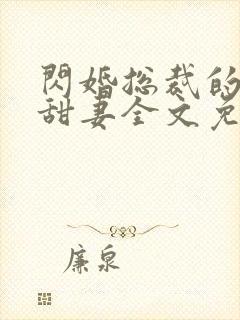 閃婚总裁的
甜妻全文免
廉泉